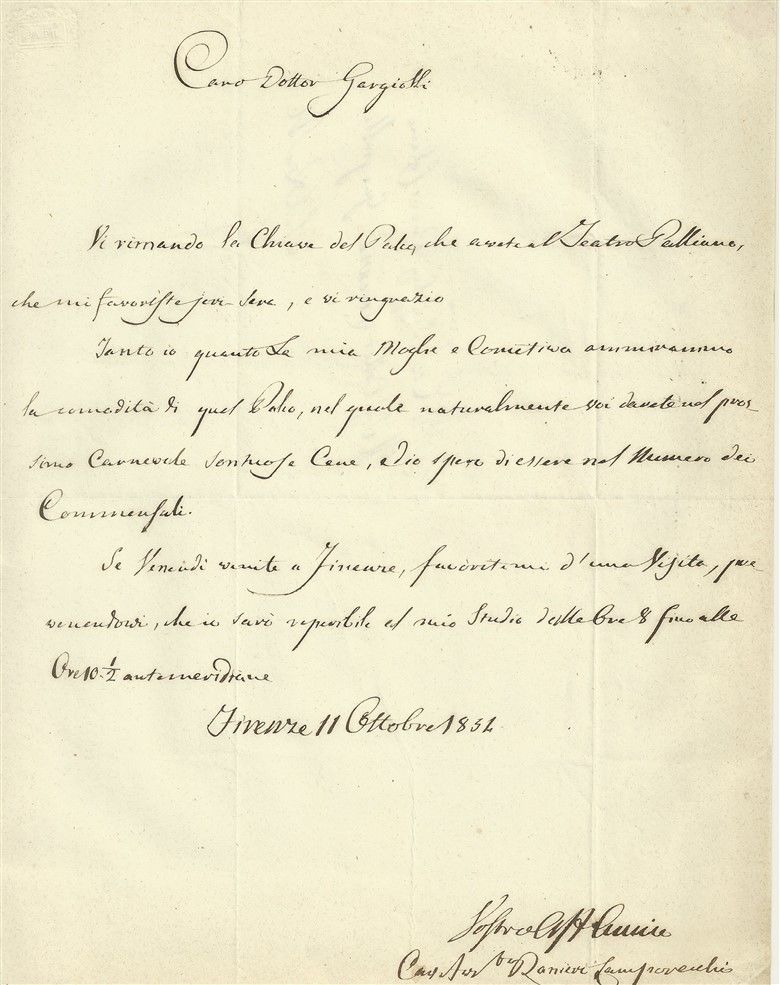 Caro Dottor Gargiolli
Vi rimando la Chiave del Palco, che avete al Teatro Palliano,
che mi favoriste jeri sera, e vi ringrazio
Tanto io quanto La mia Moglie e Comitiva ammirammo
la comodità di quel Palco, nel quale naturalmente voi darete nel pros-
simo Carnevale sontuose Cene, ed io spero di essere nel Numero dei
Commensali.
Se Venerdì venite a Firenze, favoritemi d'una Visita, pre-
venendovi, che io sarò reperibile al mio Studio dalle Ore 8 fino alle
Ore 10 ½ antemeridiane
Firenze 11 Ottobre 1854
Vostro Aff Amico
Cav Avv Ranieri Lamporecchi